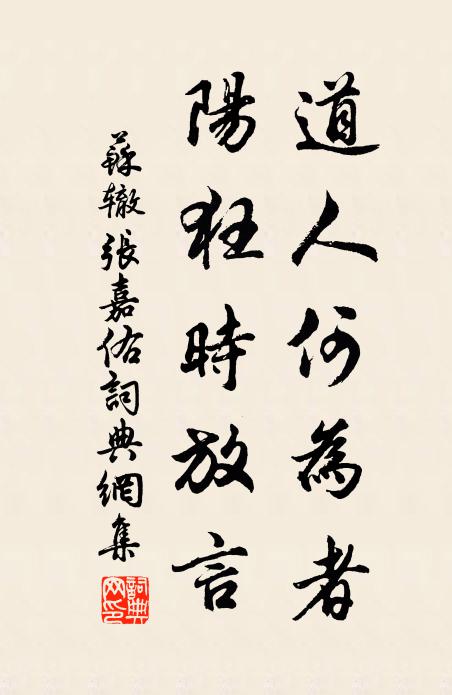 道人何為者
陽狂時放言
蘇辙張嘉佑詞典網集
詞典网印